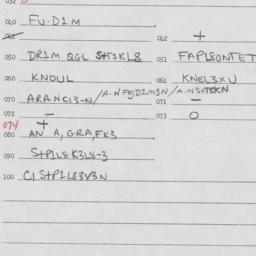 040 FU.D1M
062 +
050 DR1M QGL StT1KL8 051 FAPL8ONTET
060 KNOUL 061 KNEL3XU
070 ARANC13-N/A.NFEJD1M3N/A.NSTTEKN
072 - 071 -
074 + 073 O
080 AN A,GRA,FK3
090 StP1LEK3L8-3
100 C1StP1L83V3N